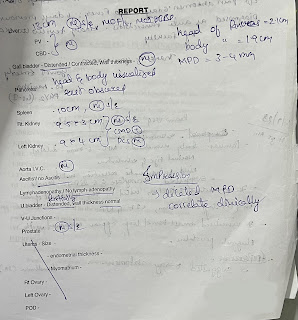 REPORT
cm (N) S/E
head of Pancreas = 2.1cm
PV -
body " = 1.9cm
CBD - (N)
Gall bladder - Distended / Contracted, Wall thickness - (N)
MPD = 3-4 mm
Pancreas head & body visualized
rest obscured
Spleen 10cm, (N) S/E
Rt. Kidney 9.5 x 3 cm (N) S/E
CMD +
Left Kidney 9 x 4 cm PCS (N)
Aorta I.V.C. (N)
Ascites / no Ascites
Impression
Lymphadenopathy / No lymph adenopathy
U.bladder - Distended, Wall thickness normal
dilated MPD
correlate clinically
V-U Junctions -
Prostate (N) S/E
Uterus - Size -
- endometrial thickness -
- Myometrium -
Rt Ovary -
Left Ovary -
POD -